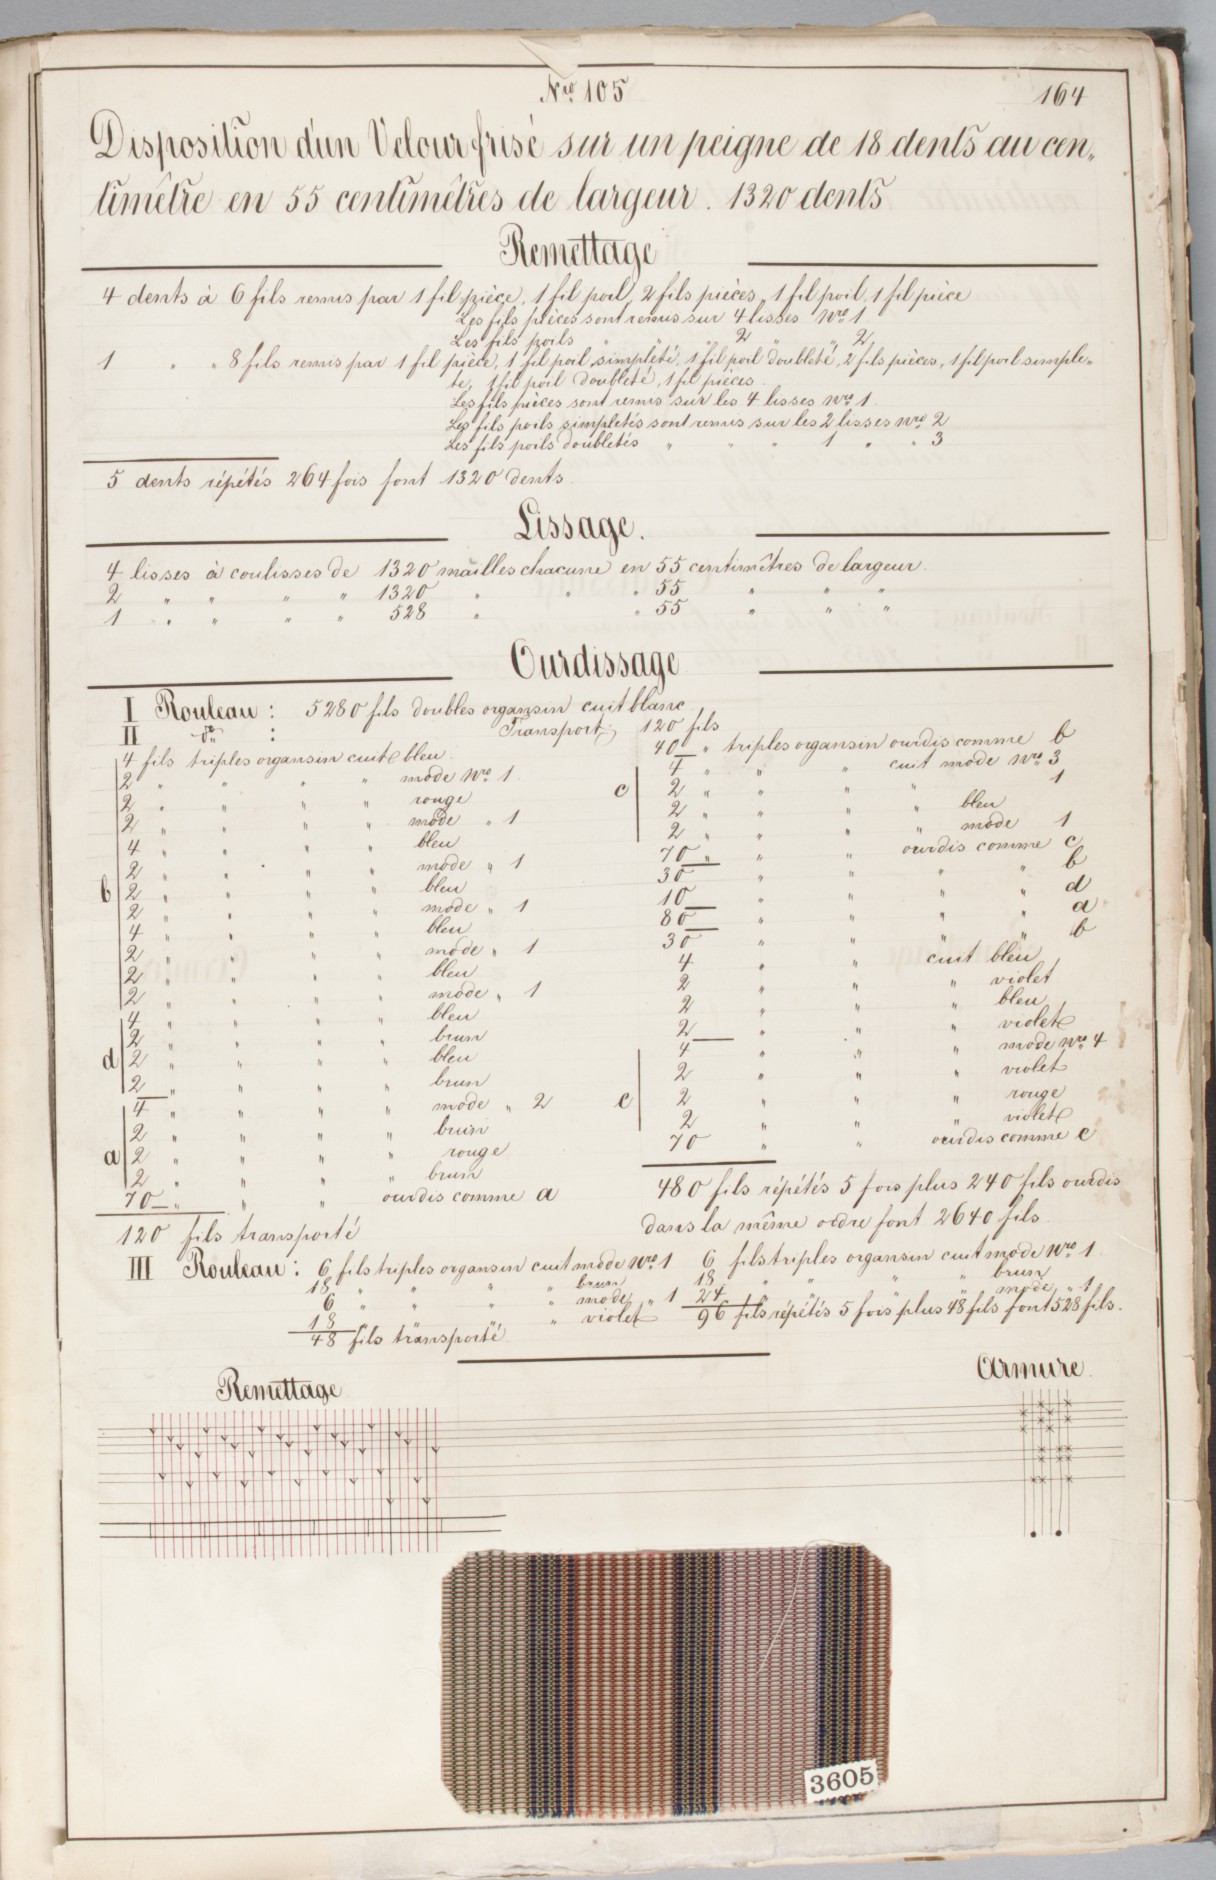 Nro. 105
164
Disposition d'un Velour frisé sur un peigne de 18 dents au cen-
timêtre en 55 centimêtres de largeur. 1320 dents
Remettage
4 dents à 6 fils remis par 1 fil pièce, 1 fil poil, 2 fils pièces, 1 fil poil, 1 fil pièce
Les fils pièces sont remis sur 4 lisses Nro. 1
Les fils poils " " 2 " 2
1 " " 8 fils remis par 1 fil pièce, 1 fil poil simpleté, 1 fil poil doubleté, 2 fils pièces, 1 fil poil simple-
té, 1 fil poil doubleté, 1 fil pièces.
Les fils pièces sont remis sur les 4 lisses Nro. 1
Les fils poils simpletés sont remis sur les 2 lisses Nro 2
Les fils poils doubletés " " " 1 " " 3
5 dents répétés 264 fois font 1320 dents
Lissage.
4 lisses à coulisses de 1320 mailles chacune en 55 centimêtres de largeur.
2 " " " " 1320 " " " 55 " " "
1 " " " " 528 " " 55 " " "
Ourdissage
I Rouleau : 5280 fils doubles organsin cuit blanc
II do :
4 fils triples organsin cuit bleu
2 " " " " mode Nro. 1
2 " " " " rouge
2 " " " " mode " 1
4 " " " " bleu
2 " " " " mode " 1
b 2 " " " " bleu
2 " " " " mode " 1
4 " " " " bleu
2 " " " " mode " 1
2 " " " " bleu
2 " " " " mode " 1
4 " " " " bleu
2 " " " " brun
d 2 " " " " bleu
2 " " " " brun
4 " " " " mode " 2
2 " " " " brun
a 2 " " " " rouge
2 " " " " brun
70 " " " ourdis comme a
120 fils transporté
Transport 120 fils
40 " triples organsin ourdis comme b
4 " " " cuit mode Nro. 3
c 2 " " " " 1
2 " " " " bleu
2 " " " " mode 1
70 " " " ourdis comme c
30 " " " " b
10 " " " " d
80 " " " " a
30 " " " " b
4 " " cuit bleu
2 " " " violet
2 " " " bleu
2 " " " violet
4 " " " mode Nro. 4
2 " " " violet
e 2 " " " rouge
2 " " " violet
70 " " ourdis comme e
480 fils répétés 5 fois plus 240 fils ourdis
dans la même ordre font 2640 fils.
III Rouleau : 6 fils triples organsin cuit mode Nro. 1
18 " " " " brun
6 " " " " mode " 1
18 " " " " violet
48 fils transporté
6 fils triples organsin cuit mode Nro. 1
18 " " " " brun
24 " " " " mode " 1
96 fils répétés 5 fois plus 48 fils font 528 fils.
Remettage
Armure.
3605